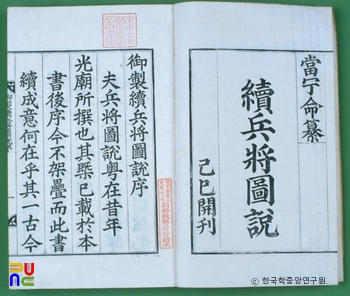 當宁命纂
續兵將圖說
己巳開刊
御製續兵將圖說序
夫兵將圖說粤在昔年
光廟所撰也其槩已載於本
書後序今不架疊而此書
續成意何在乎其一古今
ⓒ 한국학중앙연구원